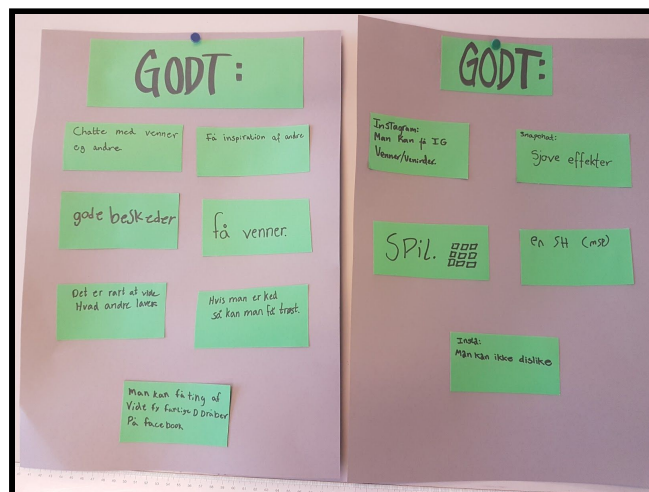 GODT:
Chatte med venner
og andre
få inspiration af andre
gode beskeder
få venner.
Det er rart at vide
Hvad andre laver
Hvis man er ked
så kan man få trøst.
Man kan få ting af
Vide fx farlige D Dråber
På facebook
GODT:
Instagram:
Man kan få IG
Venner/Veninder
Snapchat:
Sjove effekter
SPIL.
en SH (mse)
Insta:
Man kan ikke dislike